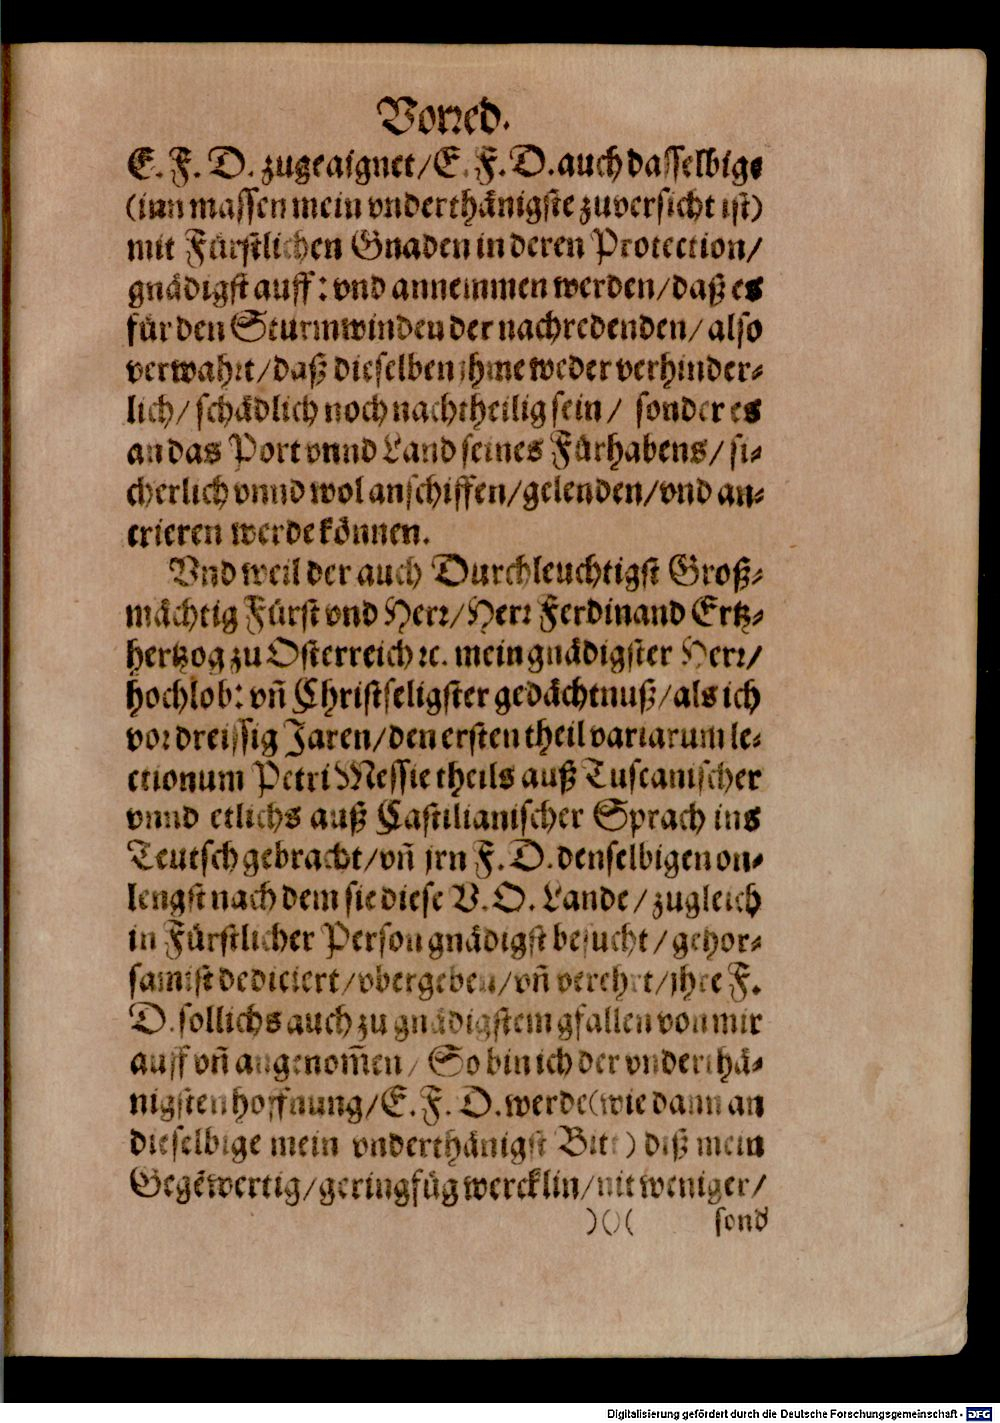 Vorred.
E. F. D. zugeaignet/E. F. D. auch dasselbige
(inn massen mein vnderthänigste zuversicht ist)
mit Fürstlichen Gnaden in deren Protection/
gnädigst auff: vnd annemmen werden/daß es
für den Sturmwinden der nachredenden/also
verwahrt/daß dieselben jhme weder verhinder⸗
lich/ schädlich noch nachtheilig sein/ sonder es
an das Port vnnd Land seines Fürhabens/ si⸗
cherlich vnnd wol anschiffen/gelenden/vnd an⸗
erieren werde können.
Vnd weil der auch Durchleuchtigst Groß⸗
mächtig Fürst vnd Herr/Herr Ferdinand Ertz⸗
hertzog zu Osterreich ꝛc. mein gnädigster Herr/
hochlob: vñ Christseligster gedächtnuß/als ich
vor dreissig Jaren/den ersten theil variarum le⸗
ctionum Petri Messie theils auß Tuscanischer
vnnd etlichs auß Castilianischer Sprach ins
Teutsch gebracht/vñ jrn F. D. denselbigen on⸗
lengst nach dem sie diese V. O. Lande/zugleich
in Fürstlicher Person gnädigst besucht/gehor⸗
samist dediciert/vbergeben/vñ verehrt/jhre F.
D. sollichs auch zu gnädigstem gfallen von mir
auff vñ angenom̃en/ So bin ich der vnderthä⸗
nigsten hoffnung/E. F. D. werde(wie dann an
dieselbige mein vnderthänigst Bitt) diß mein
Gegẽwertig/geringfüg wercklin/nit weniger/
)()( sond
Digitalisierung gefördert durch die Deutsche Forschungsgemeinschaft - DFG